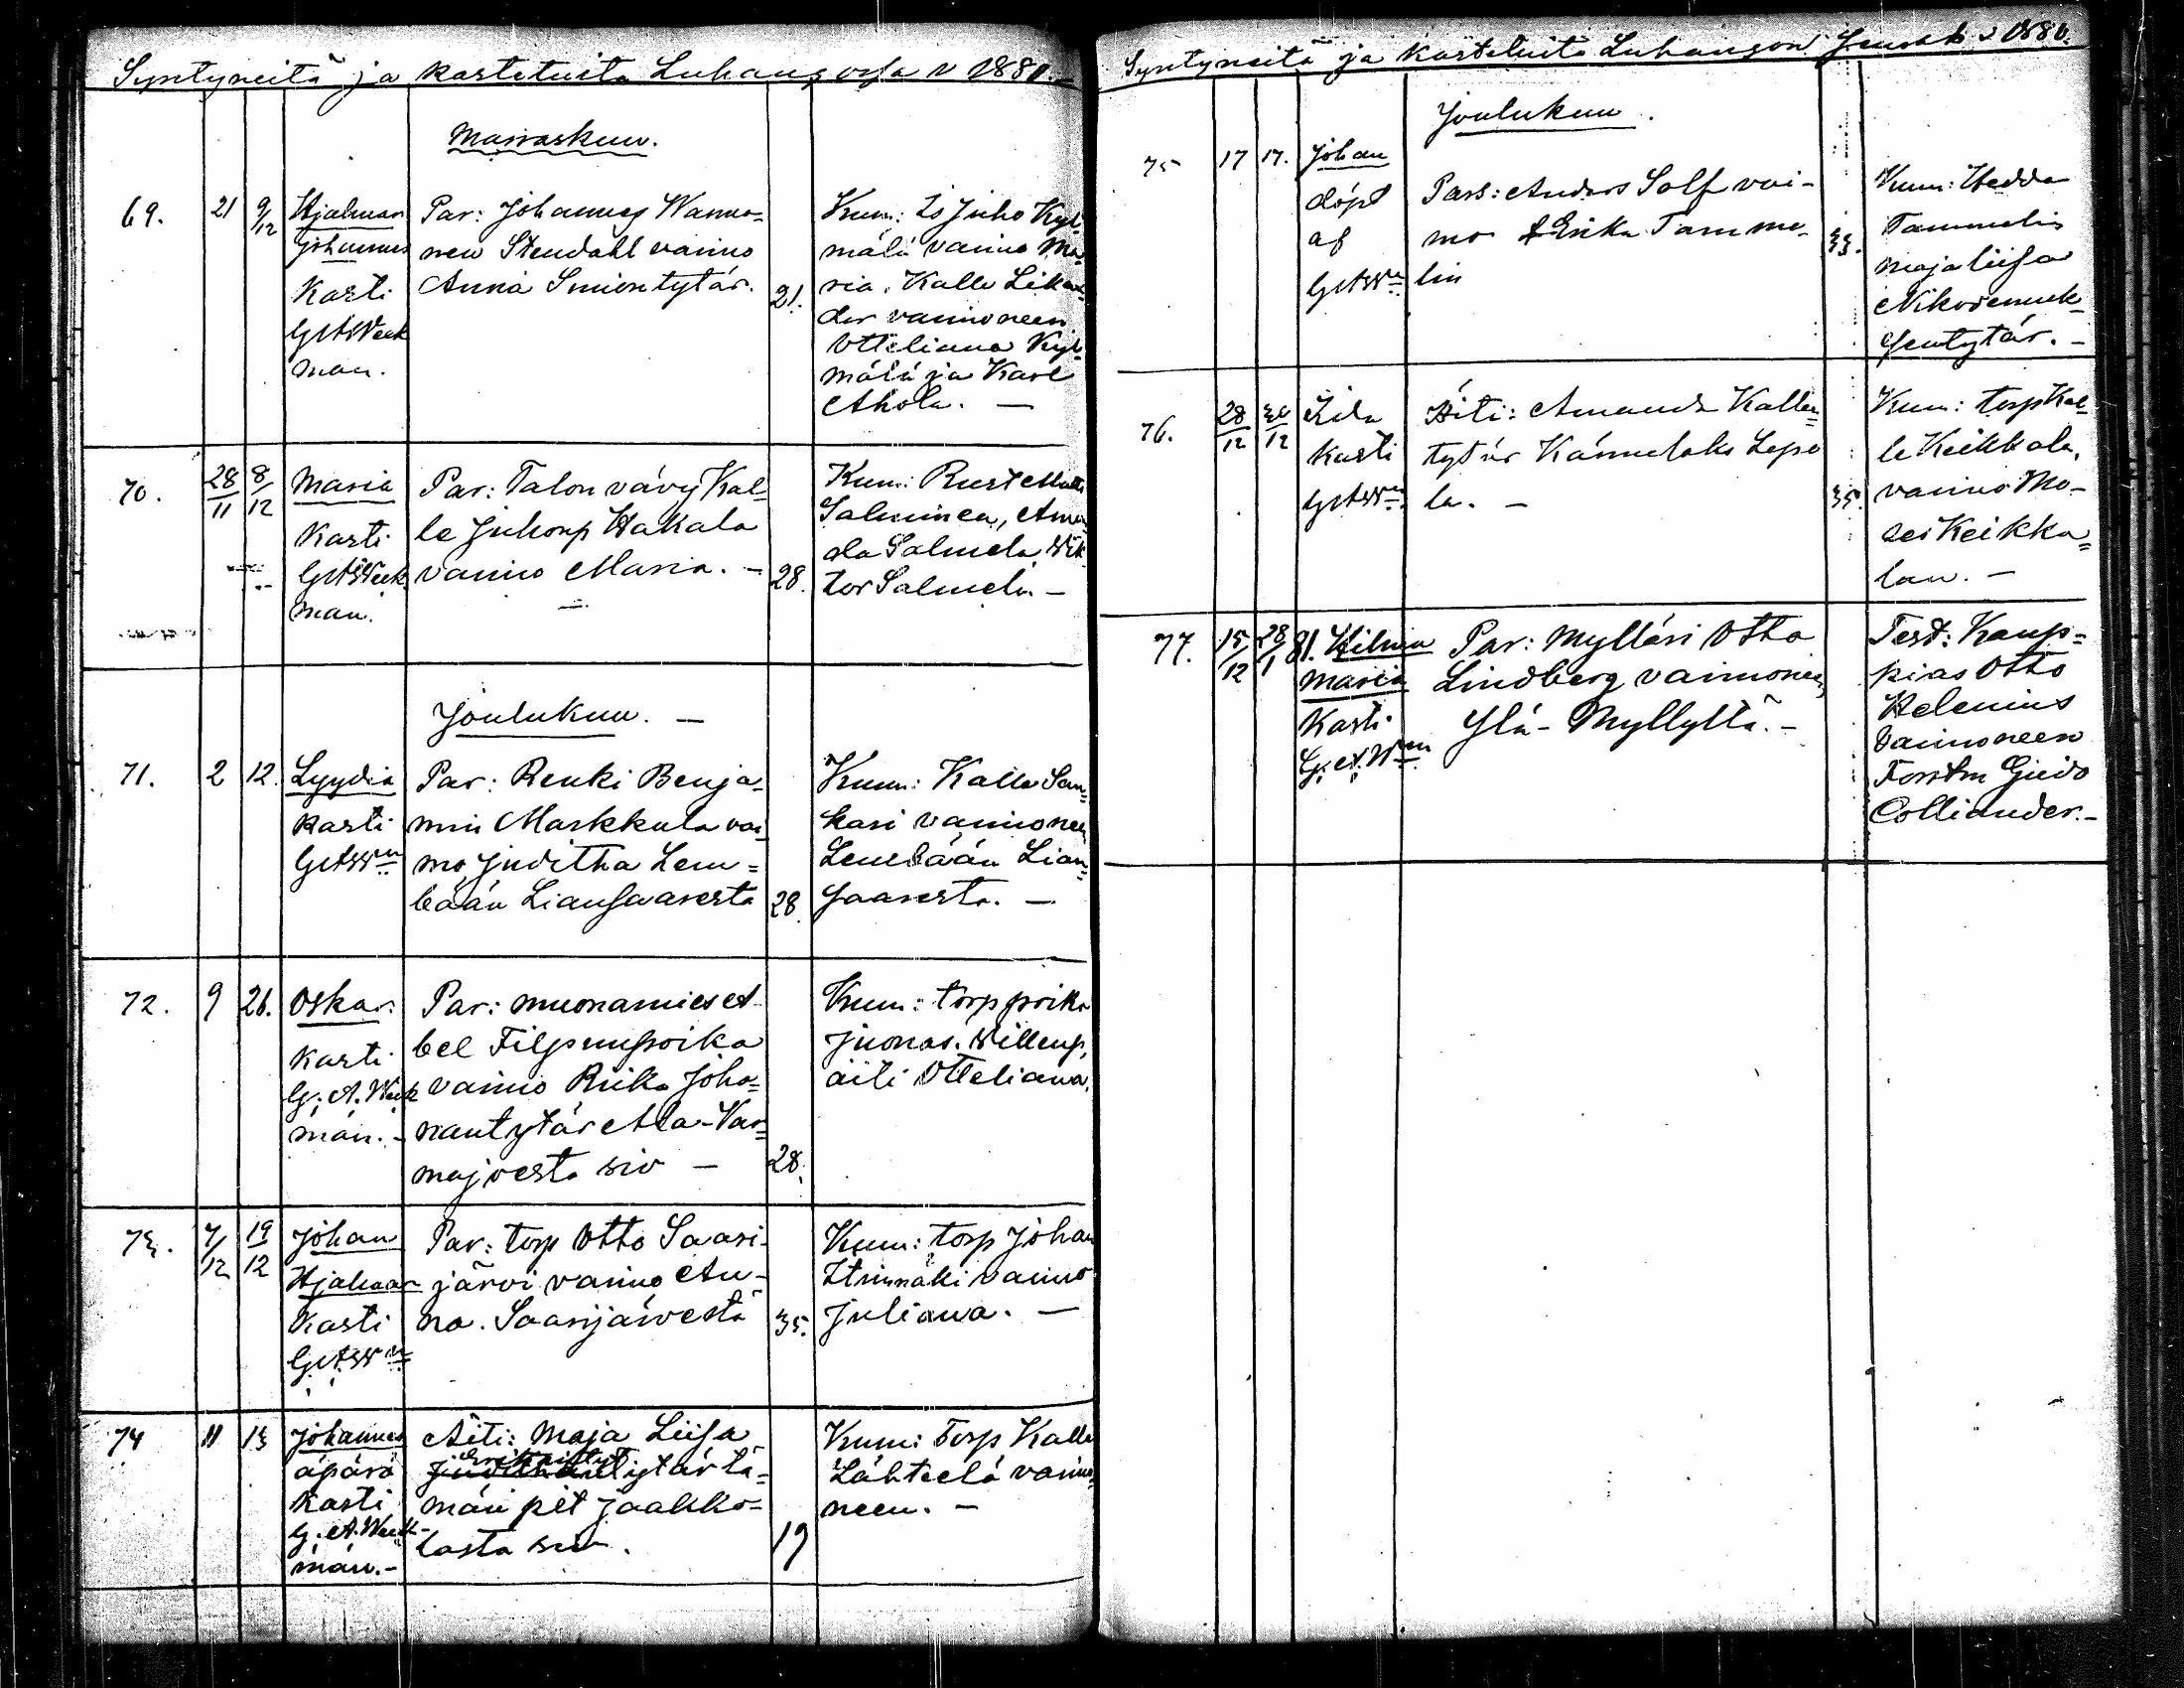 Syntyneitä ja kastetuita Luhangossa v 1880.
Marraskuu.
69. 21 9/12 Hjalmar Johannes Kasti G A Weckman.
Par: Johannes Manno=
nen Stendahl vaimo
Anna Simontytär. 21.
Kum: Is Juho Kyl
mälä vaimo Ma
ria. Kalle Likan
der vaimoneen
Otteliana Kyl
mälä ja Karl
Ahola. —
70. 28/11 8/12 Maria Kasti G A Weckman.
Par: Talon vävy Kal=
le Juhonp Hakala
vaimo Maria. — 28.
Kum: Rust Matti
Salminen, Aman
da Salmela, Wik
tor Salmela —
Joulukuu. —
71. 2 12. Lyydia Kasti G A W:n
Par: Renki Benja=
min Markkula vai
mo Juditha Lem=
bään Liansaaresta 28.
Kum: Kalle San=
kari vaimoneen
Lembään Lian=
saaresta. —
72. 9 26. Oskar. Kasti G. A. Weckman. -
Par: muonamies A-
bel Filpunpoika
vaimo Riika Joha=
nantytär Ala-Var=
majoesta siv — 28.
Kum: torp poika
Juonas. Willenp,
äiti Otteliana.
73. 7/12 19/12 Johan Hjalmar Kasti G A W:n
Par: torp Otto Saari-
järvi vaimo An-
na. Saarijärvestä 35.
Kum: torp Johan
vaimo
Juliana. —
74 11 13 Johannes äpärä Kasti G. A. Weckman. -
Äiti: Maja Liisa
tytär tä=
män pit Jaakko=
lasta siv. 19
Kum: Torp Kalle
Lähteelä vaimo=
neen. —
Syntyneitä ja kasteluita Luhangon v 1880.
Joulukuu.
75 17 17. Johan döpt af G A W:n
Pars: Anders Solf vai-
mo Erika Tamme-
lin 33.
Kum: Hedda
Tammelin
Maja Liisa
Nikodemuk=
sentytär. —
76. 28/12 30/12 Iida Kasti G A W:n
Äiti: Amanda Kallen
tytär Lepo
la. — 35.
Kum: torp Kal=
le Keikkala,
vaimo
Keikka=
lan. —
77. 15/12 28/1 81. Hilma Maria Kasti G. A. W:n
Par: Mylläri Otto
Lindberg vaimoneen
Ylä-Myllyltä. —
Test: Kaup=
pias Otto
Helenius
vaimoneen
Forstm Guido
Colliander. —